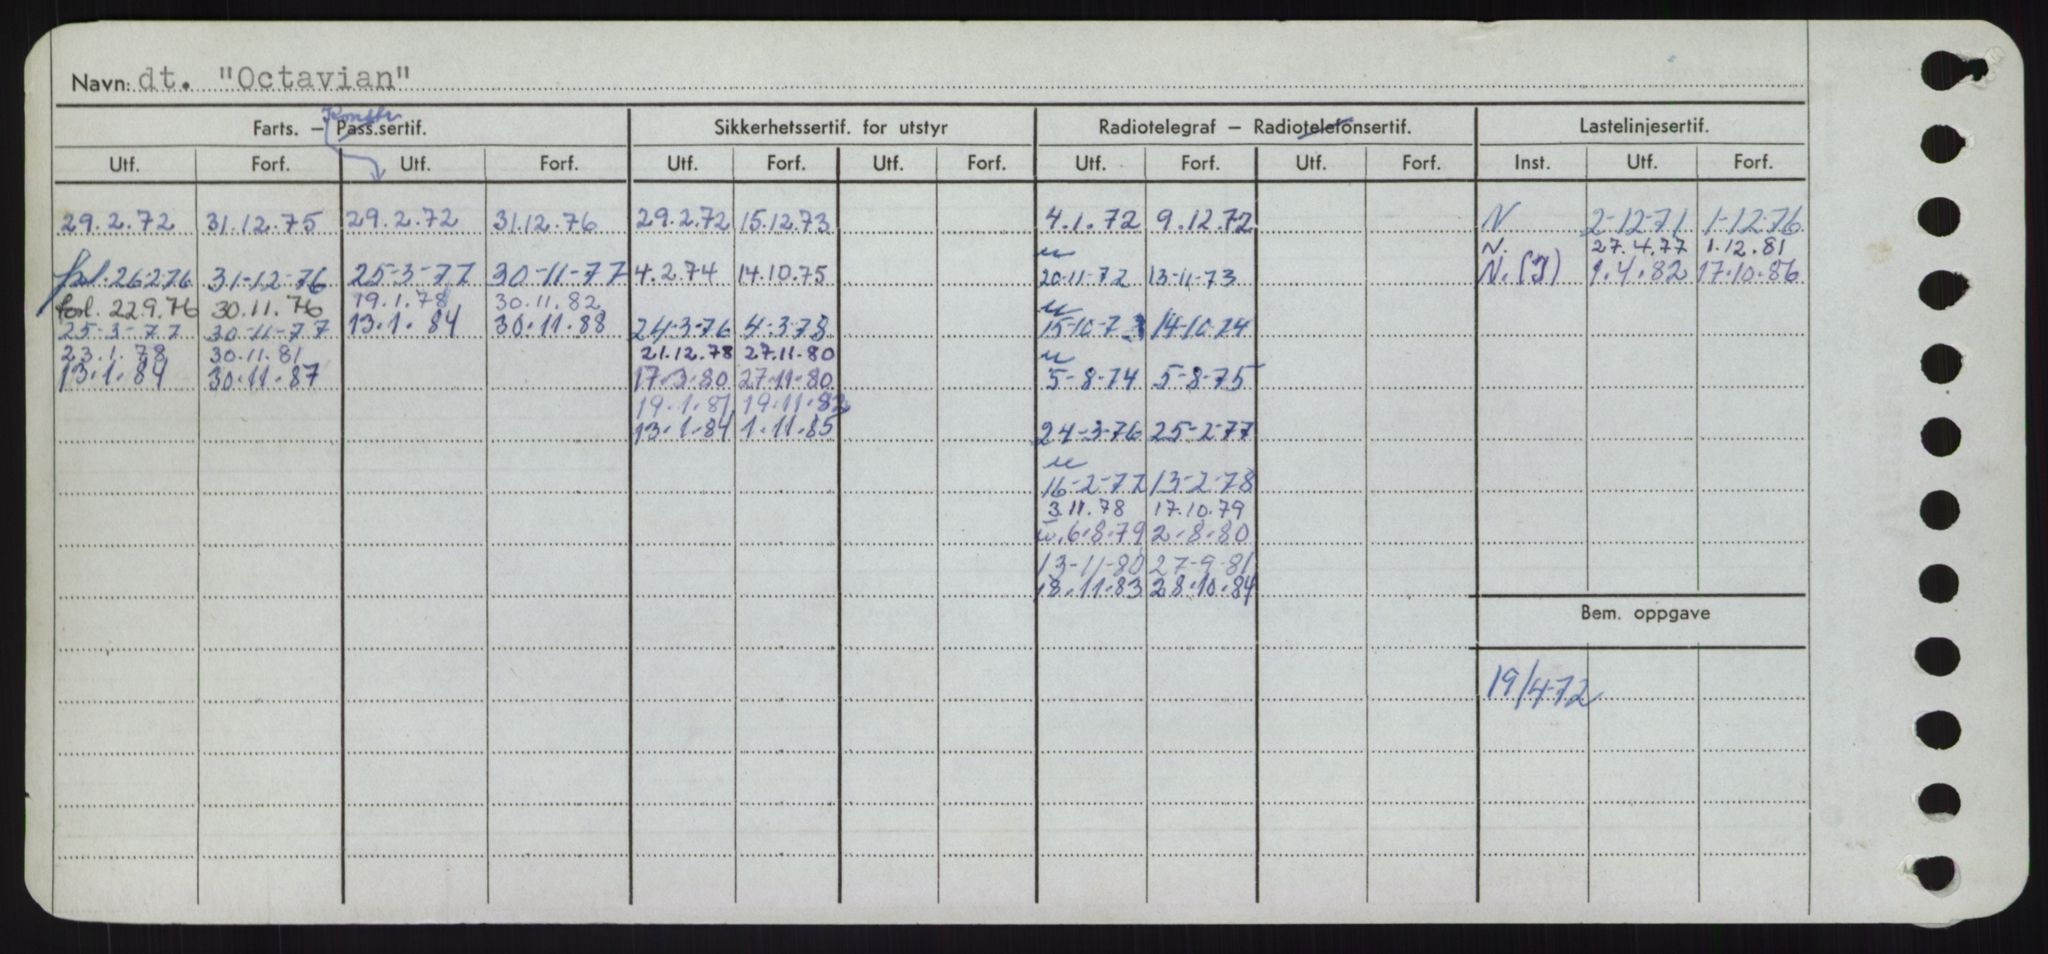 Navn: dt. "Octavian"
Konstr.
Farts. – Pass.sertif. Sikkerhetssertif. for utstyr Radiotelegraf – Radiotelefonsertif. Lastelinjesertif.
Utf. Forf. Utf. Forf. Utf. Forf. Utf. Forf. Utf. Forf. Utf. Forf. Inst. Utf. Forf.
29.2.72 31.12.75 29.2.72 31.12.76 29.2.72 15.12.73 4.1.72 9.12.72 N 2-12-71 1-12-76
N. 27.4.77 1.12.81
forl. 26-2-76 31-12-76 25-3-77 30-11-77 4.2.74 14.10.75 20-11-72 13-11-73 N.(I) 1.4.82 17.10.86
forl. 22.9.76 30.11.76 19.1.78 30.11.82
25-3-77 30-11-77 13.1.84 30.11.88 24-3-76 4-3-78 15-10-73 14-10-74
23.1.78 30.11.81 21.12.78 27.11.80
13.1.84 30.11.87 17.3.80 27.11.80 5-8-74 5-8-75
19.1.81 19.11.82
13.1.84 1.11.85 24-3-76 25-2-77
16-2-77 13-2-78
3.11.78 17.10.79
6.8.79 2.8.80
13-11-80 27-9-81
18.11.83 28.10.84
Bem. oppgave
19/4-72